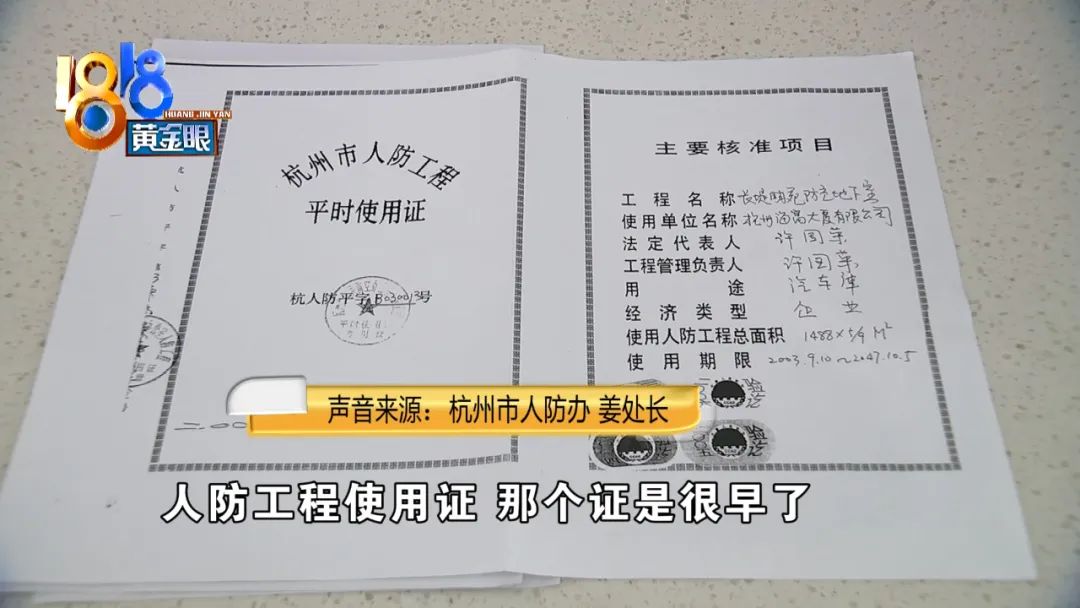 1818
HUANG JIN YAN
黄金眼
杭州市人防工程
平时使用证
杭人防平字B030013号
平时使用
二.〇〇
主要核准项目
工程名称 长堤明苑防空地下室
使用单位名称 杭州海高大厦有限公司
法定代表人 许国荣
工程管理负责人 许国荣
用途 汽车库
经济类型 企业
使用人防工程总面积 1488 M²
使用期限 2003.9.10~2047.10.5
声音来源:杭州市人防办 姜处长
人防工程使用证 那个证是很早了